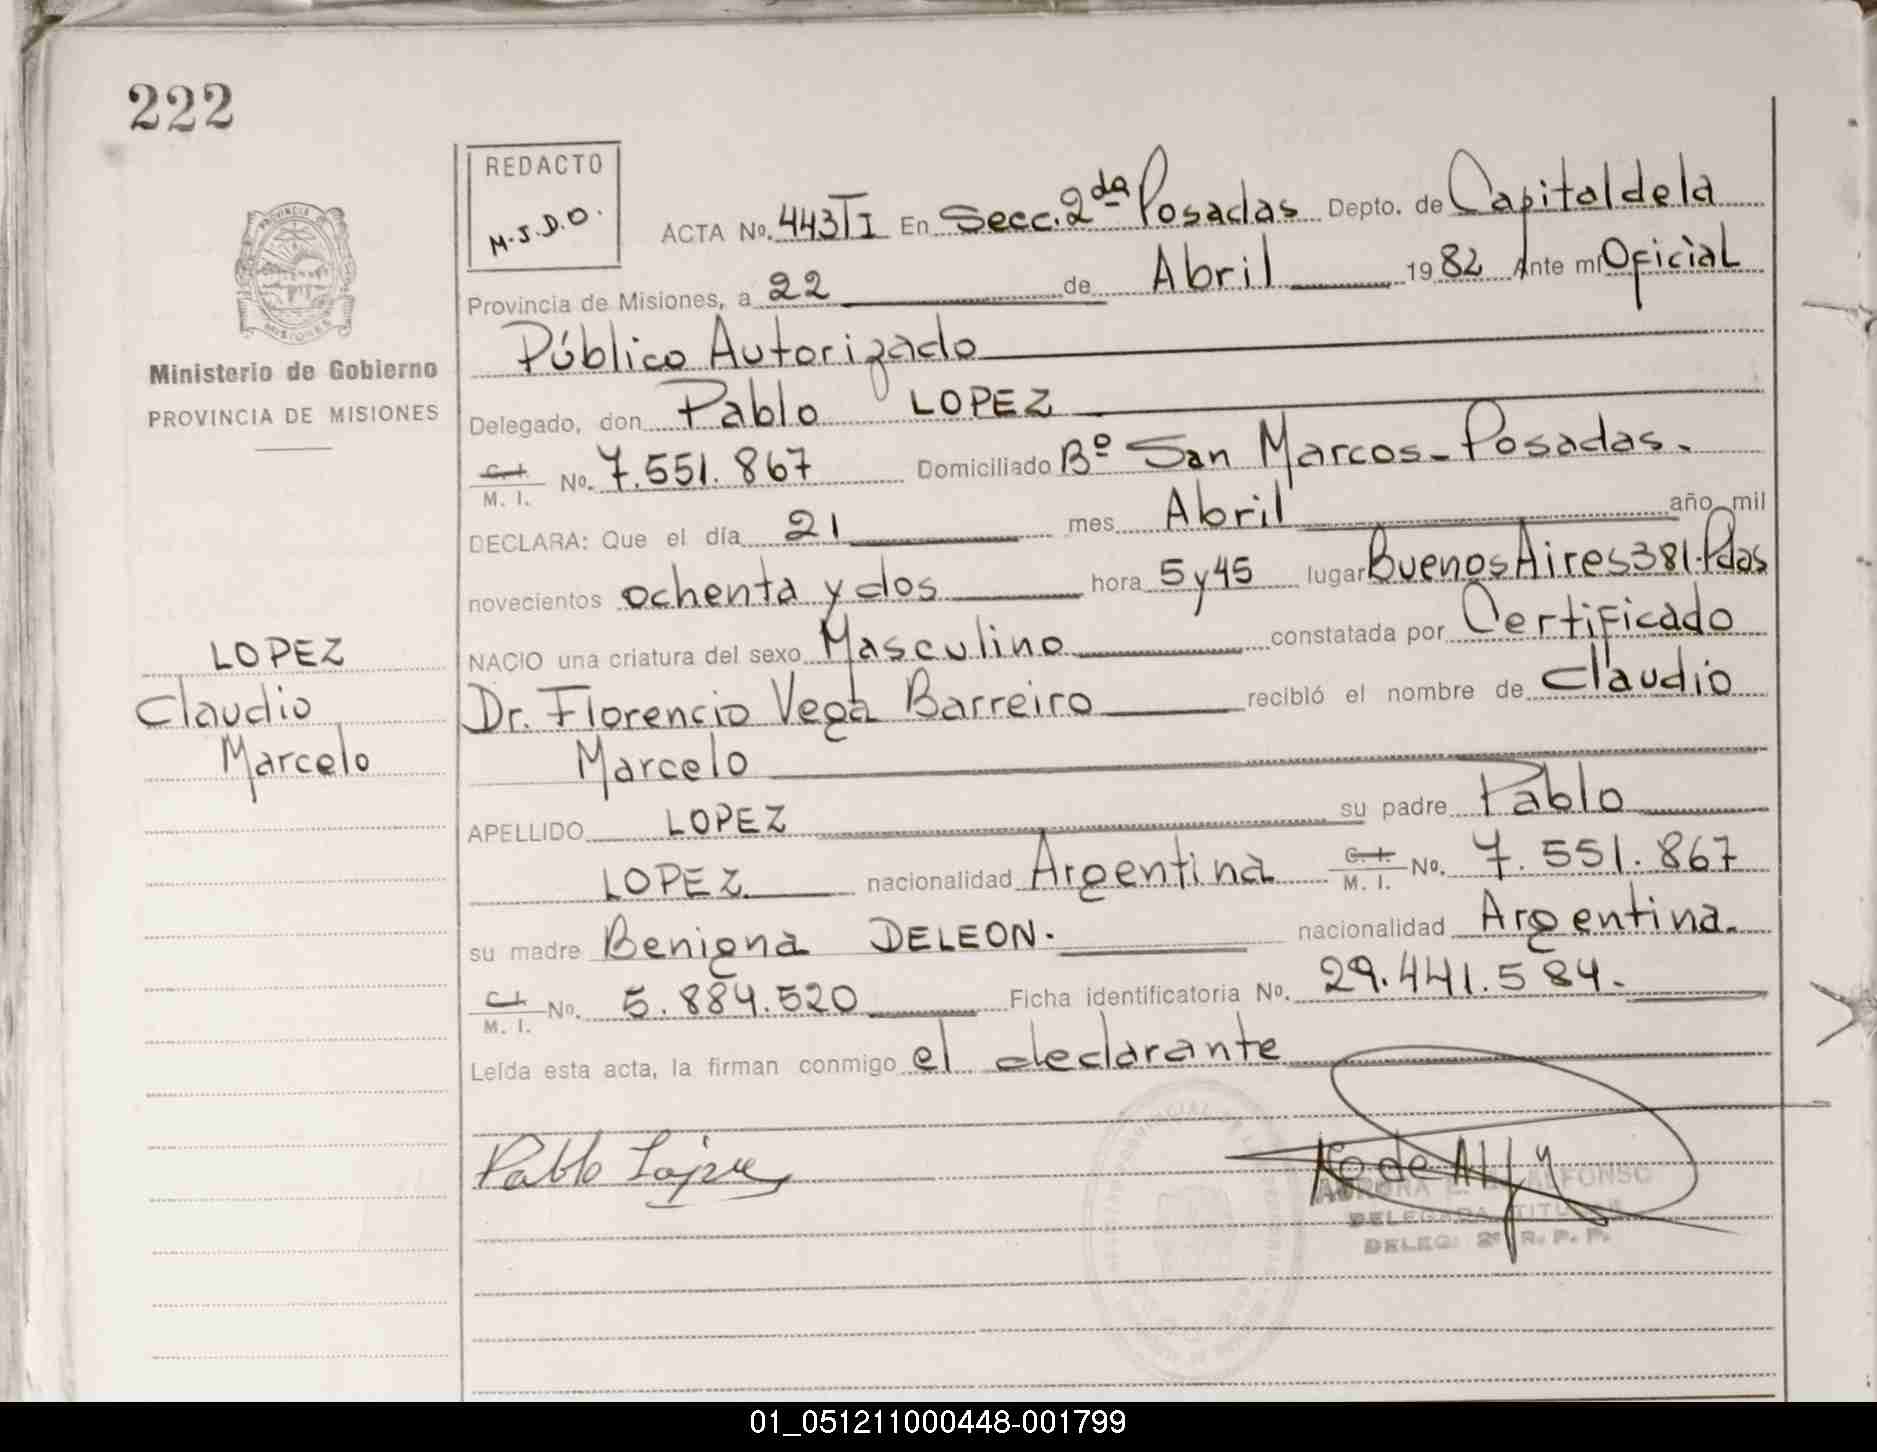 222
REDACTO
M.S.D.O.
ACTA No. 443TI En Secc. 2da Posadas Depto. de Capital de la
Provincia de Misiones, a 22 de Abril 1982 Ante mi Oficial
Público Autorizado
Delegado, don Pablo LOPEZ
C.I. M. I. No. 7.551.867 Domiciliado Bº San Marcos - Posadas.
DECLARA: Que el día 21 mes Abril año mil
novecientos ochenta y dos hora 5 y 45 lugar Buenos Aires 381. Pdas
NACIO una criatura del sexo Masculino constatada por Certificado
Dr. Florencio Vega Barreiro recibió el nombre de Claudio
Marcelo
APELLIDO LOPEZ su padre Pablo
LOPEZ nacionalidad Argentina C.I. M. I. No. 7.551.867
su madre Benigna DELEON. nacionalidad Argentina.
C.I. M. I. No. 5.884.520 Ficha identificatoria No. 29.441.584.
Leída esta acta, la firman conmigo el declarante
Pablo López
AURORA E. ALFONSO
DELEGADA TITULAR
DELEG. 2º R. P. P.
PROVINCIA DE MISIONES
Ministerio de Gobierno
PROVINCIA DE MISIONES
LOPEZ
Claudio
Marcelo
01_051211000448-001799